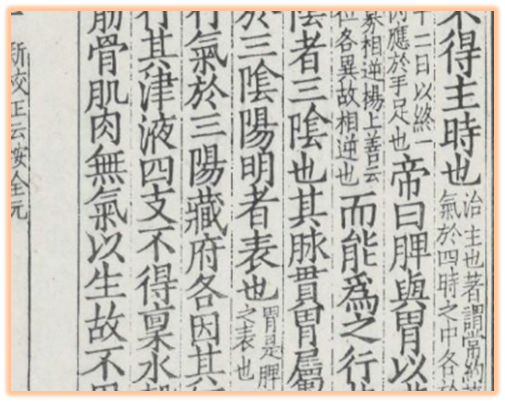 不得主時也治主也著謂常約著
氣於四時之中各於
十二日以終一
內應於手足也帝曰脾與胃以
相逆楊上善云
位各異故相逆也而能爲之行
陰者三陰也其脉貫胃屬
於三陰陽明者表也胃是脾
之表也
行氣於三陽藏府各因其
行其津液四支不得稟水
筋骨肌肉無氣以生故不用
新校正云按全元